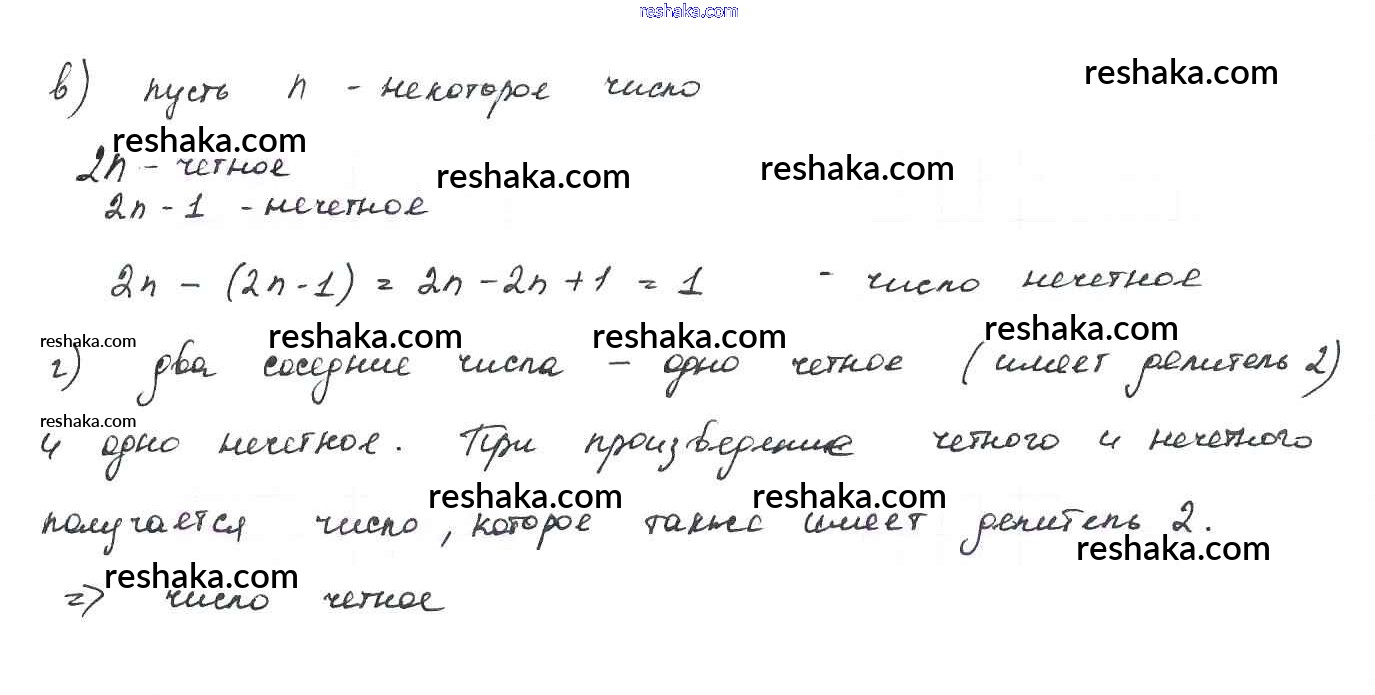 reshaka.com
в) пусть n - некоторое число reshaka.com
reshaka.com
2n - четное reshaka.com reshaka.com
2n - 1 - нечетное
2n - (2n - 1) = 2n - 2n + 1 = 1 - число нечетное
reshaka.com reshaka.com reshaka.com reshaka.com
г) два соседние числа - одно четное (имеет делитель 2)
reshaka.com
и одно нечетное. При произведение четного и нечетного
reshaka.com reshaka.com
получается число, которое также имеет делитель 2.
reshaka.com reshaka.com
=> число четное